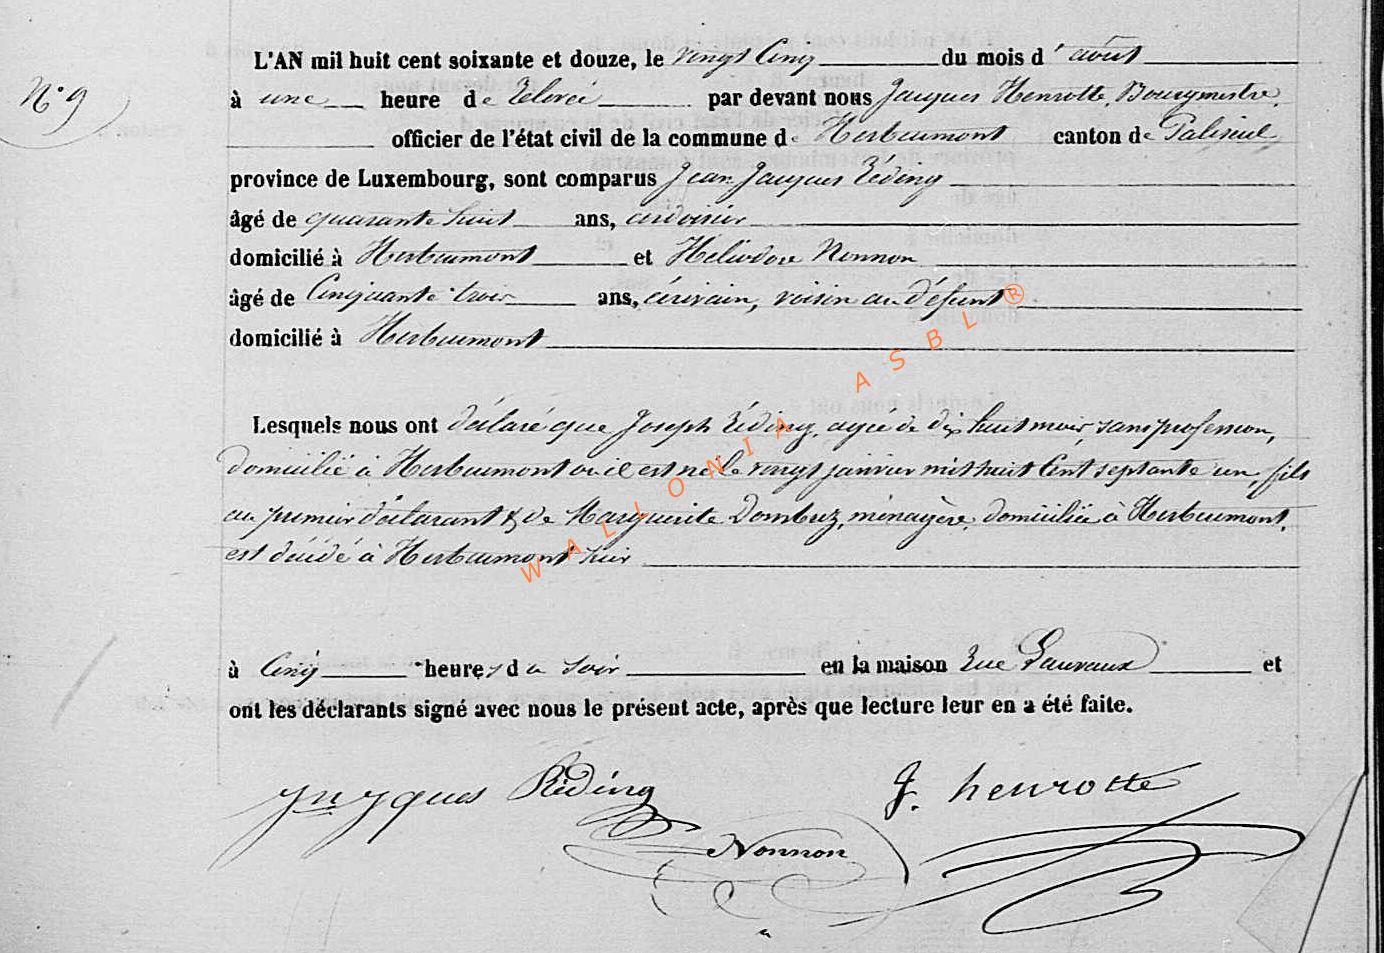 N° 9
L'AN mil huit cent soixante et douze, le vingt Cinq du mois d'août
à une heure de relevée par devant nous Jacques Henrotte, Bourgmestre,
officier de l'état civil de la commune de Herbeumont canton de Paliseul
province de Luxembourg, sont comparus Jean Jacques Réding
âgé de quarante huit ans, ardoisier
domicilié à Herbeumont et Heliodore Nonnon
âgé de Cinquante trois ans, écrivain, voisin au défunt
domicilié à Herbeumont
Lesquels nous ont déclaré que Joseph Réding, agé de dix huit mois, sans profession,
domicilié à Herbeumont où il est né le vingt janvier mil huit Cent septante un, fils
au premier déclarant & de Marguerite Dombez, ménagère, domiciliée à Herbeumont,
est décédé à Herbeumont hier
à Cinq heures du soir en la maison Rue Lauvaux et
ont les déclarants signé avec nous le présent acte, après que lecture leur en a été faite.
Jn Jques Réding J. henrotte
Nonnon
WALLONIA ASBL ®